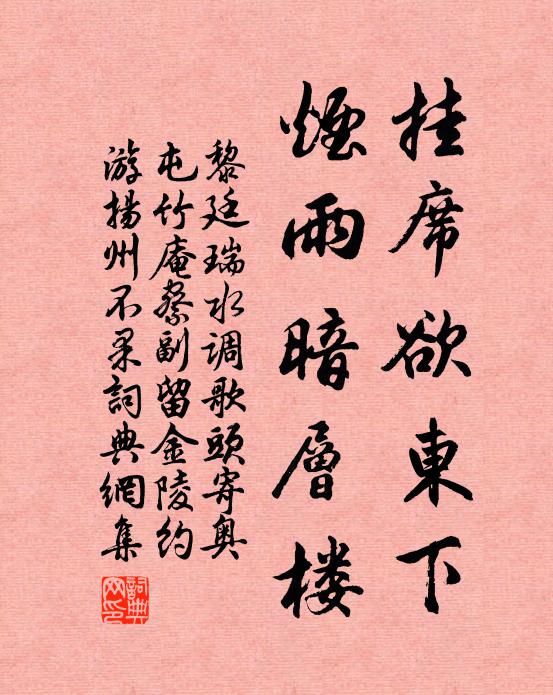 挂席欲東下
煙雨暗層楼
黎廷瑞水调歌頭寄奥
屯竹庵察副留金陵约
游揚州不果詞典網集
詞典網印